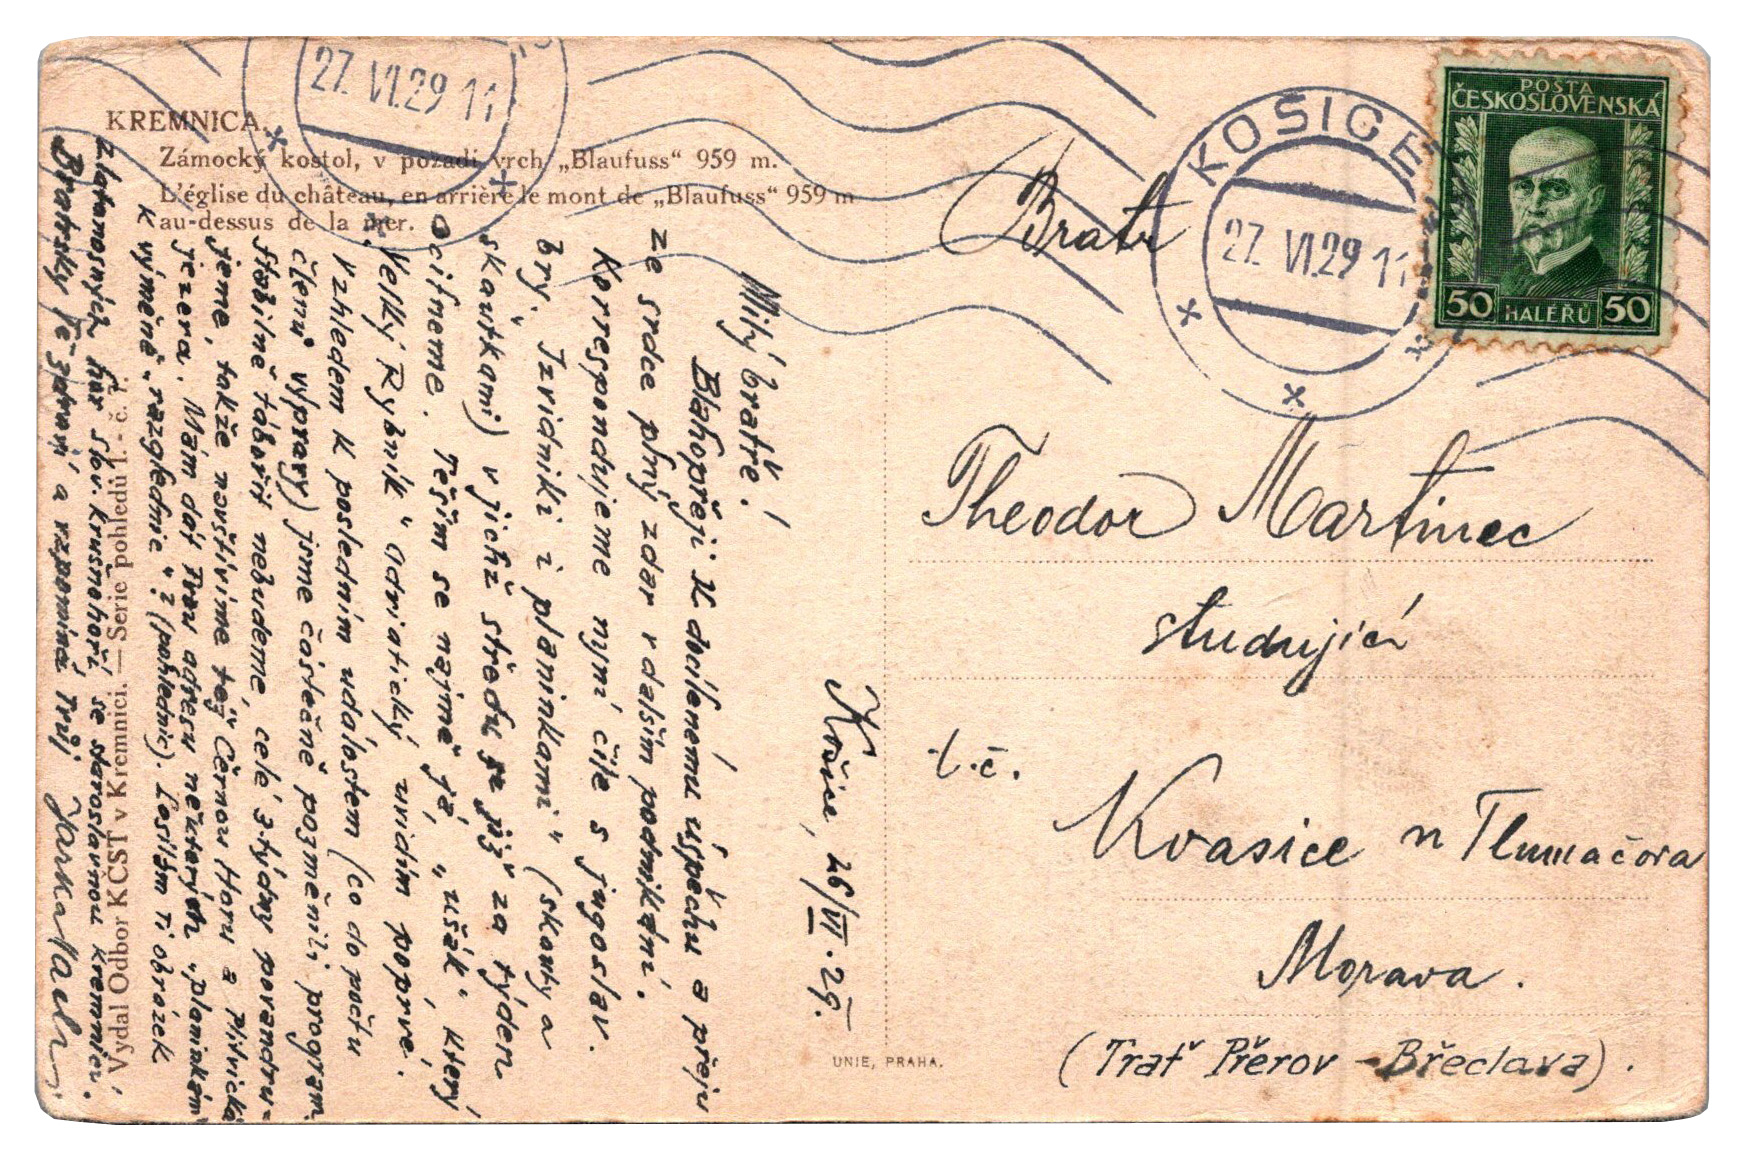 KREMNICA.
Zámocký kostol, v pozadí vrch „Blaufuss“ 959 m.
L'église du château, en arrière le mont de „Blaufuss“ 959 m
au-dessus de la mer.
27. VI. 29 11
KOSICE
27. VI. 29 11
POSTA
ČESKOSLOVENSKÁ
50 HALÉŘŮ 50
Bratr
Theodor Martinec
studující
t.č.
Kvasice n Tlumačova
Morava.
(Trať Přerov - Břeclava).
UNIE, PRAHA.
Vydal Odbor KČST v Kremnici. — Serie pohledů I. - č. 7.
Košice, 26/VI. 29.
Milý bratře!
Blahopřeji k docílenému úspěchu a přeju
ze srdce plný zdar v dalším podnikání.
Korrespondujeme nyní čile s jugoslav.
brj. Izvidniki i planinkami“ (skauty a
skautkami) v jichž středu se již za týden
ocitneme. Těším se najmě já, „ušák“, který
„Velký Rybník“ adriatický uvidím poprvé.
Vzhledem k posledním událostem (co do počtu
členů výpravy) jsme částečně pozměnili program.
Stabilně tábořit nebudeme, celé 3 týdny povandru-
jeme, takže navštívíme též Černou Horu a Plitvická
jezera. Mám dát Tvou adresu některým „planinkám“
k výměně „razglednic“? (pohlednic). Posílám Ti obrázek
zlatonosných hor slov. krušnohoří se staroslavnou Kremnicí.
Bratrsky Tě zdraví a vzpomíná Tvůj Jarka